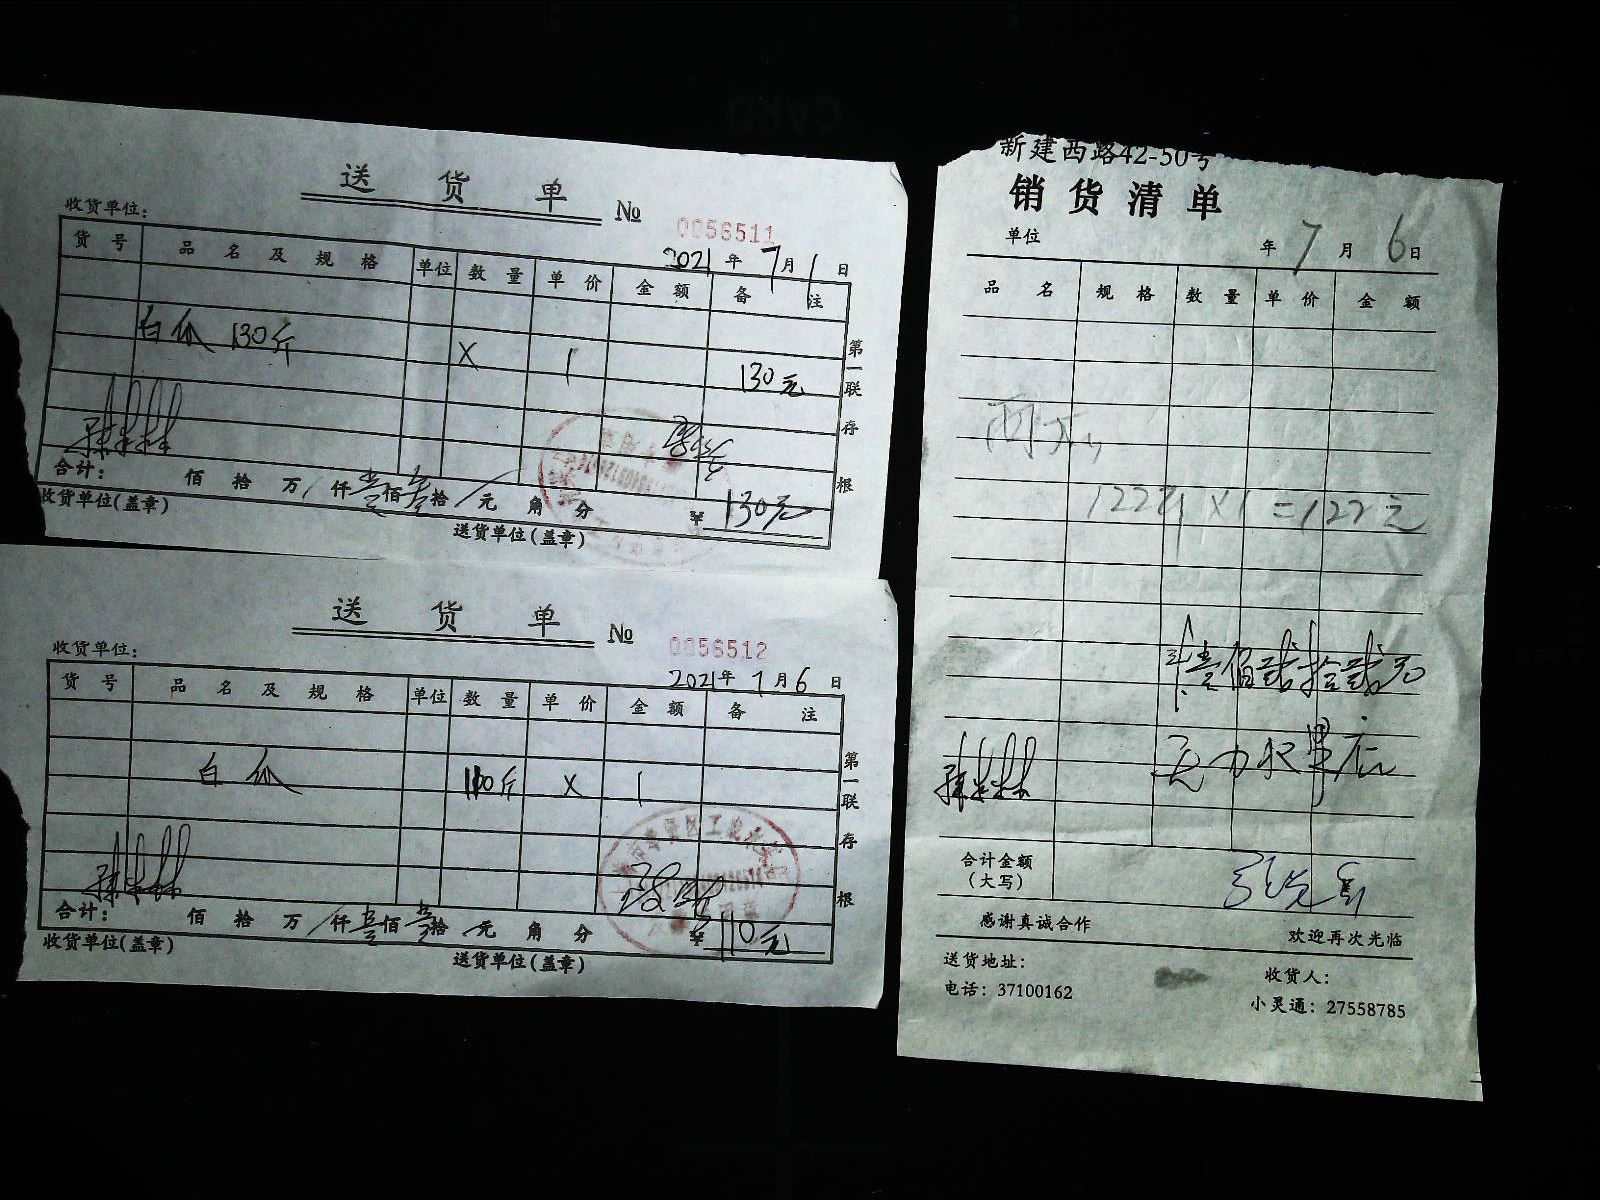 送 货 单
№ 0056511
收货单位：
2021 年 7 月 1 日
货 号 品 名 及 规 格 单位 数 量 单 价 金 额 备 注
白瓜 130斤 X 1 130元
第一联 存根
合计： 佰 拾 万 / 仟 壹 佰 叁 拾 / 元 角 分 ¥ 130元
收货单位(盖章) 送货单位(盖章)
送 货 单
№ 0056512
收货单位：
2021 年 7 月 6 日
货 号 品 名 及 规 格 单位 数 量 单 价 金 额 备 注
白瓜 110斤 X 1
第一联 存根
合计： 佰 拾 万 / 仟 壹 佰 拾 元 角 分 ¥ 110元
收货单位(盖章) 送货单位(盖章)
新建西路42-50号
销 货 清 单
单位 年 7 月 6 日
品 名 规 格 数 量 单 价 金 额
122斤 X1 =122元
壹佰贰拾贰元
水果店
合计金额
(大写)
感谢真诚合作
欢迎再次光临
送货地址：
收货人：
电话：37100162
小灵通：27558785